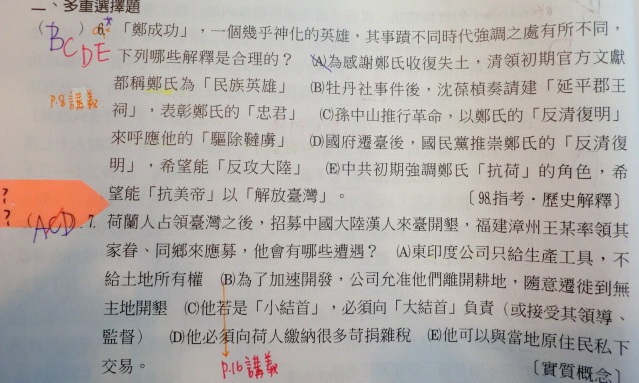 一、多重選擇題
(BCDE) 6. 「鄭成功」，一個幾乎神化的英雄，其事蹟不同時代強調之處有所不同，
下列哪些解釋是合理的？ (A)為感謝鄭氏收復失土，清領初期官方文獻
都稱鄭氏為「民族英雄」 (B)牡丹社事件後，沈葆楨奏請建「延平郡王
p.8講義
祠」，表彰鄭氏的「忠君」 (C)孫中山推行革命，以鄭氏的「反清復明」
來呼應他的「驅除韃虜」 (D)國府遷臺後，國民黨推崇鄭氏的「反清復
明」，希望能「反攻大陸」 (E)中共初期強調鄭氏「抗荷」的角色，希
望能「抗美帝」以「解放臺灣」。 〔98.指考・歷史解釋〕
?
?
(ACD) 7. 荷蘭人占領臺灣之後，招募中國大陸漢人來臺開墾，福建漳州王某率領其
家眷、同鄉來應募，他會有哪些遭遇？ (A)東印度公司只給生產工具，不
給土地所有權 (B)為了加速開發，公司允准他們離開耕地，隨意遷徙到無
主地開墾 (C)他若是「小結首」，必須向「大結首」負責（或接受其領導、
監督） (D)他必須向荷人繳納很多苛捐雜稅 (E)他可以與當地原住民私下
交易。 〔實質概念〕
p.16講義